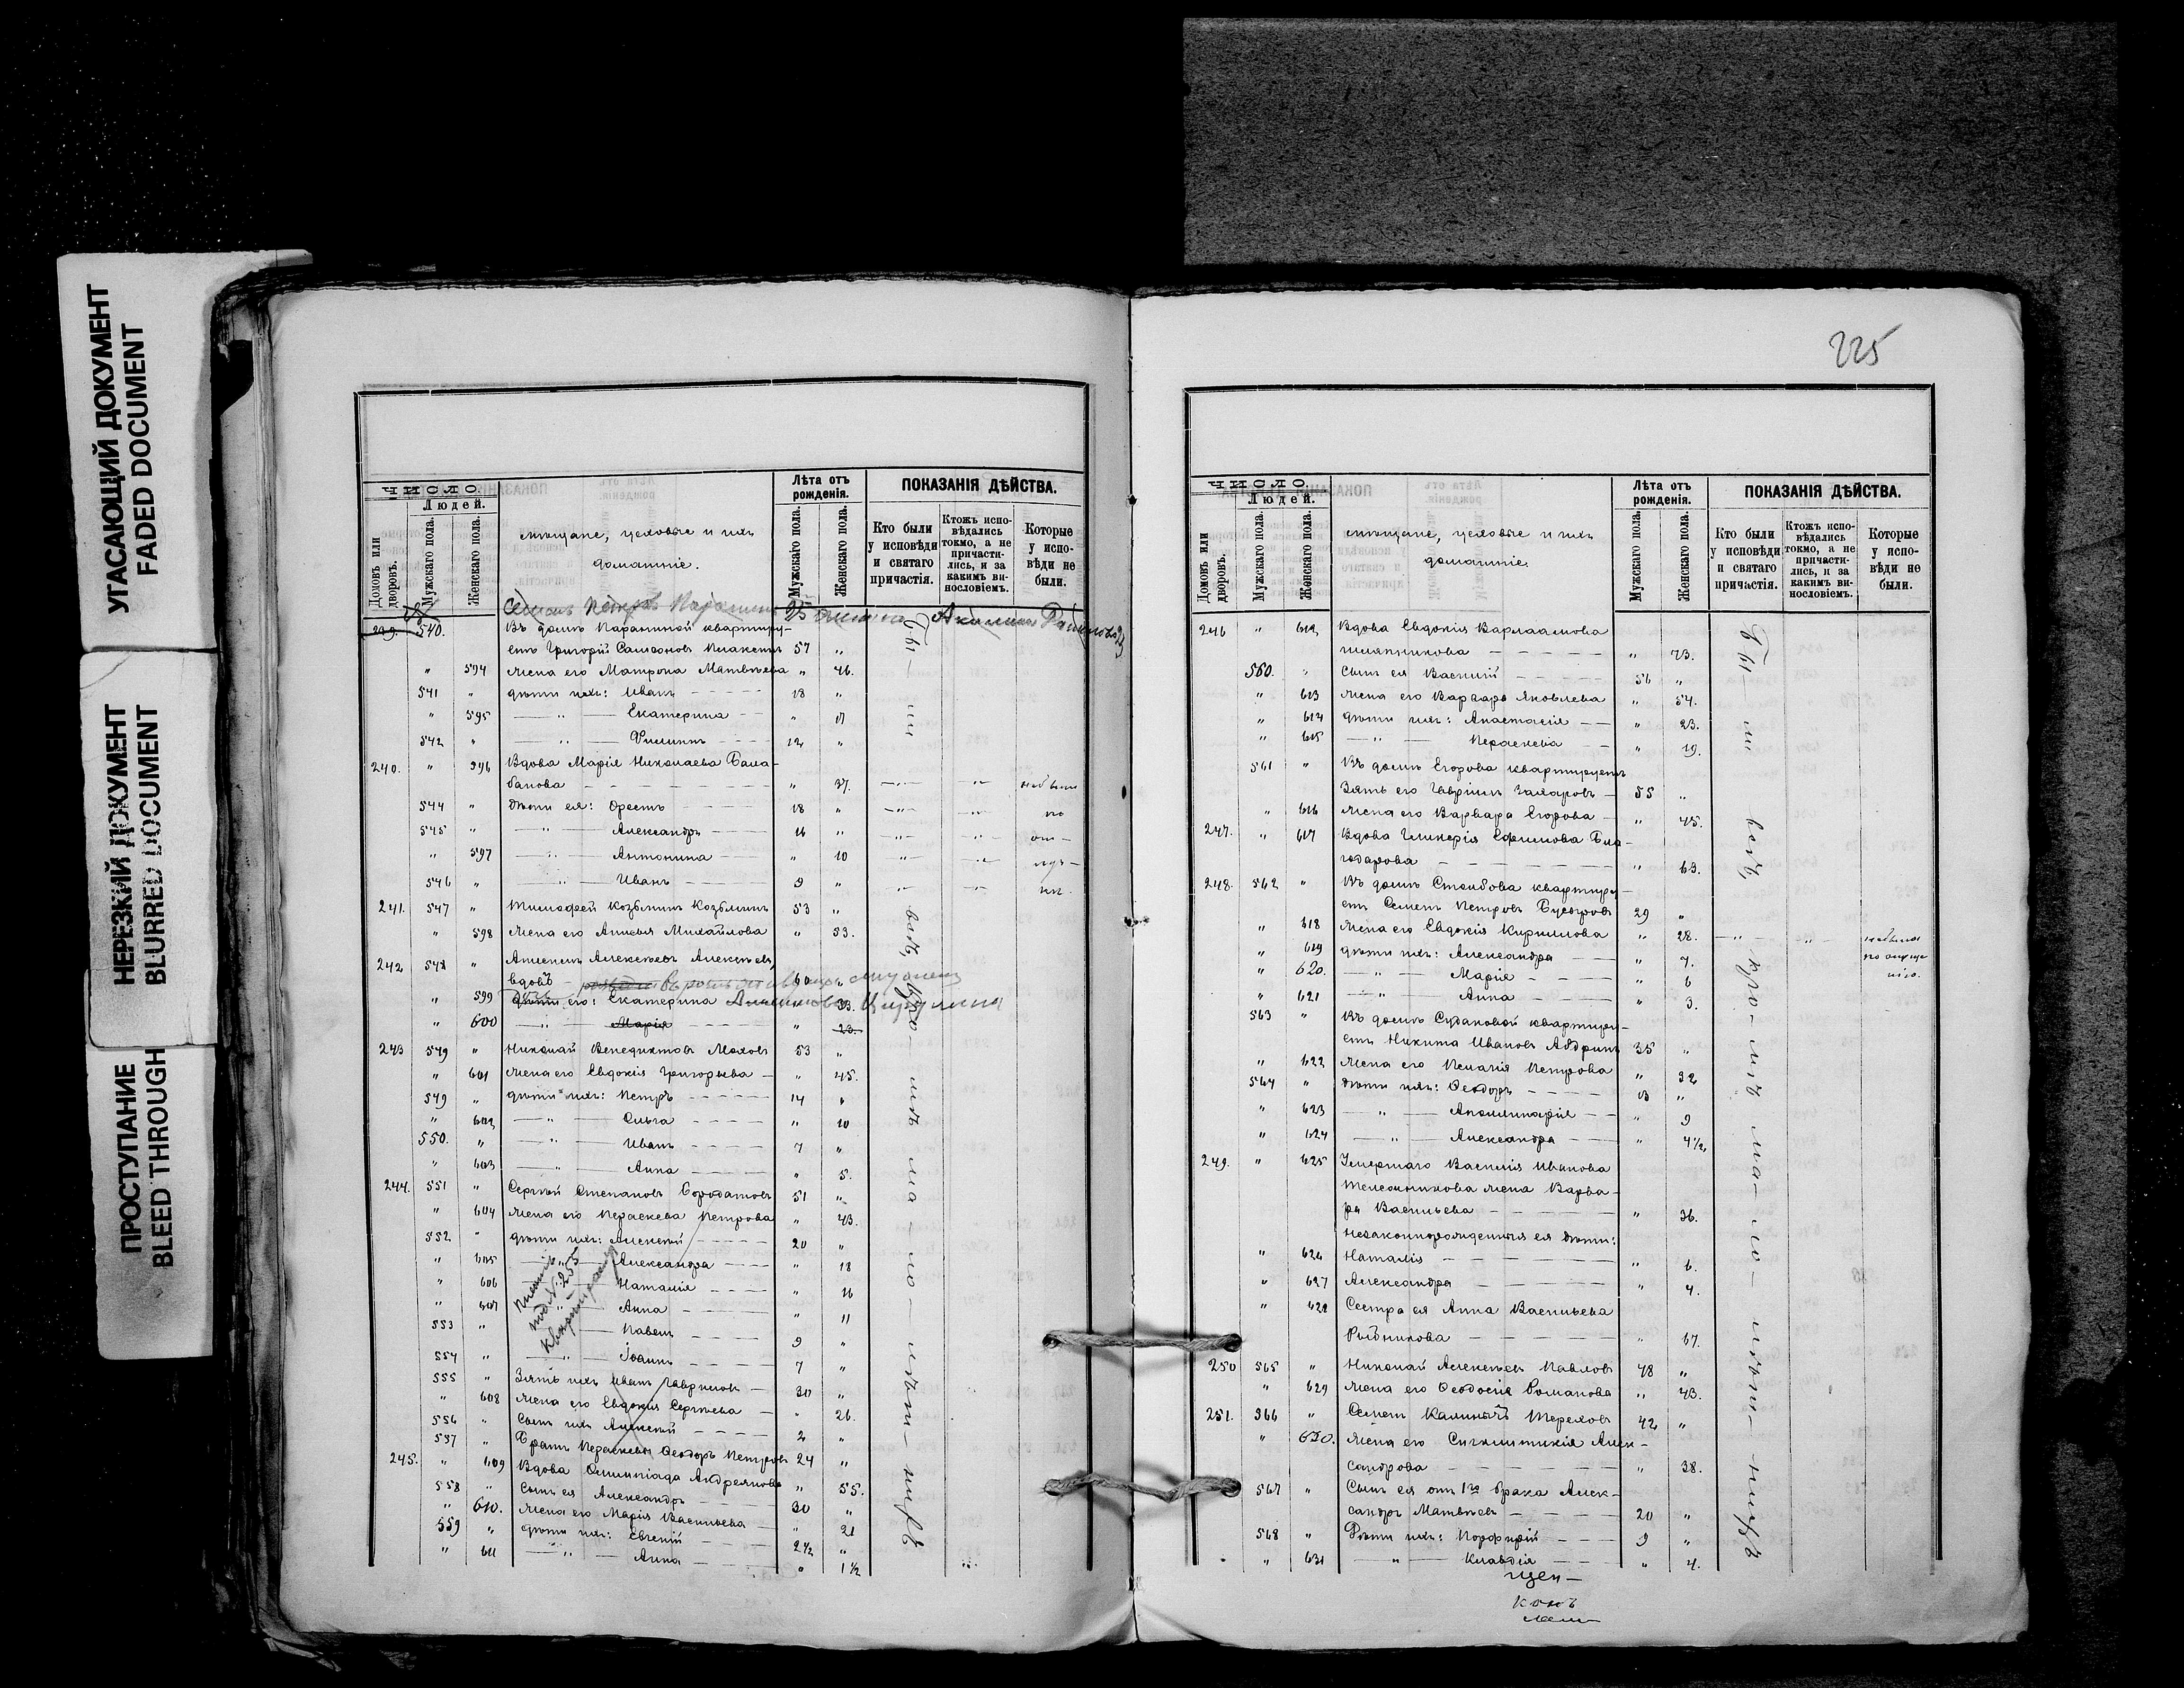 УГАСАЮЩИЙ ДОКУМЕНТ
FADED DOCUMENT
НЕРЕЗКИЙ ДОКУМЕНТ
BLURRED DOCUMENT
ПРОСТУПАНИЕ
BLEED THROUGH
ЧИСЛО
Людей.
Домовъ или дворовъ.
Мужскаго пола.
Женскаго пола.
мѣщане, цеховые и ихъ
домашніе.
Лѣта отъ рожденія.
Мужскаго пола.
Женскаго пола.
ПОКАЗАНІЯ ДѢЙСТВА.
Кто были у исповѣди и святаго причастія.
Ктожъ исповѣдались токмо, а не причастились, и за какимъ винословіемъ.
Которые у исповѣди не были.
Семенъ Петровъ 25 Акилина
239. 540. Въ домѣ Параниной квартиру-
етъ Григорій Самсоновъ 57 "
" 594 жена его Матрона Матвѣева " 46.
541 " дѣти ихъ: Иванъ 18 "
" 595 — " — Екатерина " 17
542 " — " — Филиппъ 12 "
240. " 596 Вдова Марія Николаева Бала-
банова " 37. не были
544 " Дѣти ея: Орестъ 18 " по
545 " — " — Александръ 16 " от-
" 597 — " — Антонина " 10 луч-
546 " — " — Иванъ 9 " кѣ.
241. 547 " Тимофей Козьминъ Козьминъ 53 "
" 598 жена его Анисья Михайлова " 53.
242 548 " Алексѣй Алексѣевъ Алексѣевъ,
вдовъ 60 "
" 599 Дѣти его: Екатерина " 33.
" 600 — " — Марія " 23.
243 549 " Николай Венедиктовъ Моховъ 53 "
" 601 жена его Евдокія Григорьева " 45.
549 " дѣти ихъ: Петръ 14 "
" 602 — " — Ольга " 10
550. " — " — Иванъ 7 "
" 603 — " — Анна " 5.
244. 551 " Сергѣй Степановъ Бородатовъ 51 "
" 604 жена его Параскева Петрова " 43.
552 " дѣти ихъ: Алексѣй 20 "
" 605 — " — Александра " 18
" 606 — " — Наталія " 16
" 607 — " — Анна " 11
553 " — Павелъ 9 "
554 " — " — Іоаннъ 7 "
555 " Зять ихъ Иванъ Гавриловъ 30 "
" 608 жена его Евдокія Сергѣева " 26.
556 " Сынъ ихъ Алексѣй 2 "
557 " Братъ Параскевы Ѳеодоръ Петровъ 24 "
245. " 609 Вдова Олимпіада Андреянова " 55.
558 " Сынъ ея Александръ 30 "
" 610. жена его Марія Васильева " 21
559 " дѣти ихъ: Евгеній 2½ "
" 611 — " — Анна " 1½
Бы-
ли
всѣ,
кро-
мѣ
ма-
ло-
лѣт-
нихъ
225
ЧИСЛО
Людей.
Домовъ или дворовъ.
Мужскаго пола.
Женскаго пола.
мѣщане, цеховые и ихъ
домашніе.
Лѣта отъ рожденія.
Мужскаго пола.
Женскаго пола.
ПОКАЗАНІЯ ДѢЙСТВА.
Кто были у исповѣди и святаго причастія.
Ктожъ исповѣдались токмо, а не причастились, и за какимъ винословіемъ.
Которые у исповѣди не были.
246 " 612 Вдова Евдокія Варлаамова
Шляпникова " 73.
560. " Сынъ ея Василій 56 "
" 613 жена его Варвара Яковлева " 54.
" 614 дѣти ихъ: Анастасія " 23.
" 615 — " — Параскева " 19.
561 " Въ домѣ Егорова квартируетъ
Зять его Гавріилъ Захаровъ 55 "
" 616 жена его Варвара Егорова " 45.
247. " 617 Вдова Гликерія Ефимова Бла-
годарова " 63.
248. 562 " Въ домѣ Столбова квартиру-
етъ Семенъ Петровъ 29 "
" 618 жена его Евдокія Кириллова " 28. не была
" 619 дѣти ихъ: Александра " 7.
" 620. — " — Марія " 6
" 621 — " — Анна " 3.
563 " Въ домѣ Судаковой квартиру-
етъ Никита Ивановъ 35 "
" 622 жена его Пелагія Петрова " 32
564 " Дѣти ихъ: Ѳеодоръ 13 "
" 623 — " — Аполлинарія " 9
" 624 — " — Александра " 4½
249. " 625 Умершаго Василія Иванова
Телѣжникова жена Варва-
ра Васильева " 36.
незаконнорожденныя ея дѣти:
" 626 Наталія " 6.
" 627 Александра " 4.
" 628 Сестра ея Анна Васильева
Рыбникова " 67.
250 565 " Николай Алексѣевъ Павловъ 48 "
" 629 жена его Ѳеодосія Романова " 43.
251. 566 " Семенъ Калинычъ Тереховъ 42 "
" 630. жена его Синклитикія Алек-
сандрова " 38.
567 " Сынъ ея отъ 1го брака Алек-
сандръ Матвѣевъ 20 "
568 " Дѣти ихъ: Порфирій 9 "
" 631 — " — Клавдія " 4.
Бы-
ли
всѣ,
кро-
мѣ
ма-
ло-
лѣт-
нихъ